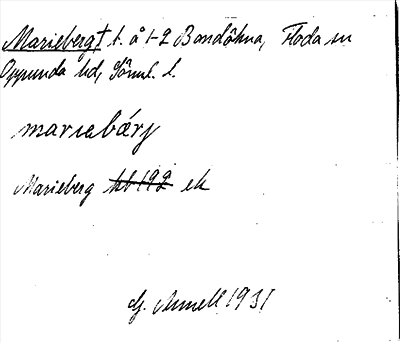 Marieberg† t. å 1-2 Bondökna, Floda sn
Oppunda hd, Söml. l.
marıebárj
Marieberg hb 192 ek
G. Annell 1931